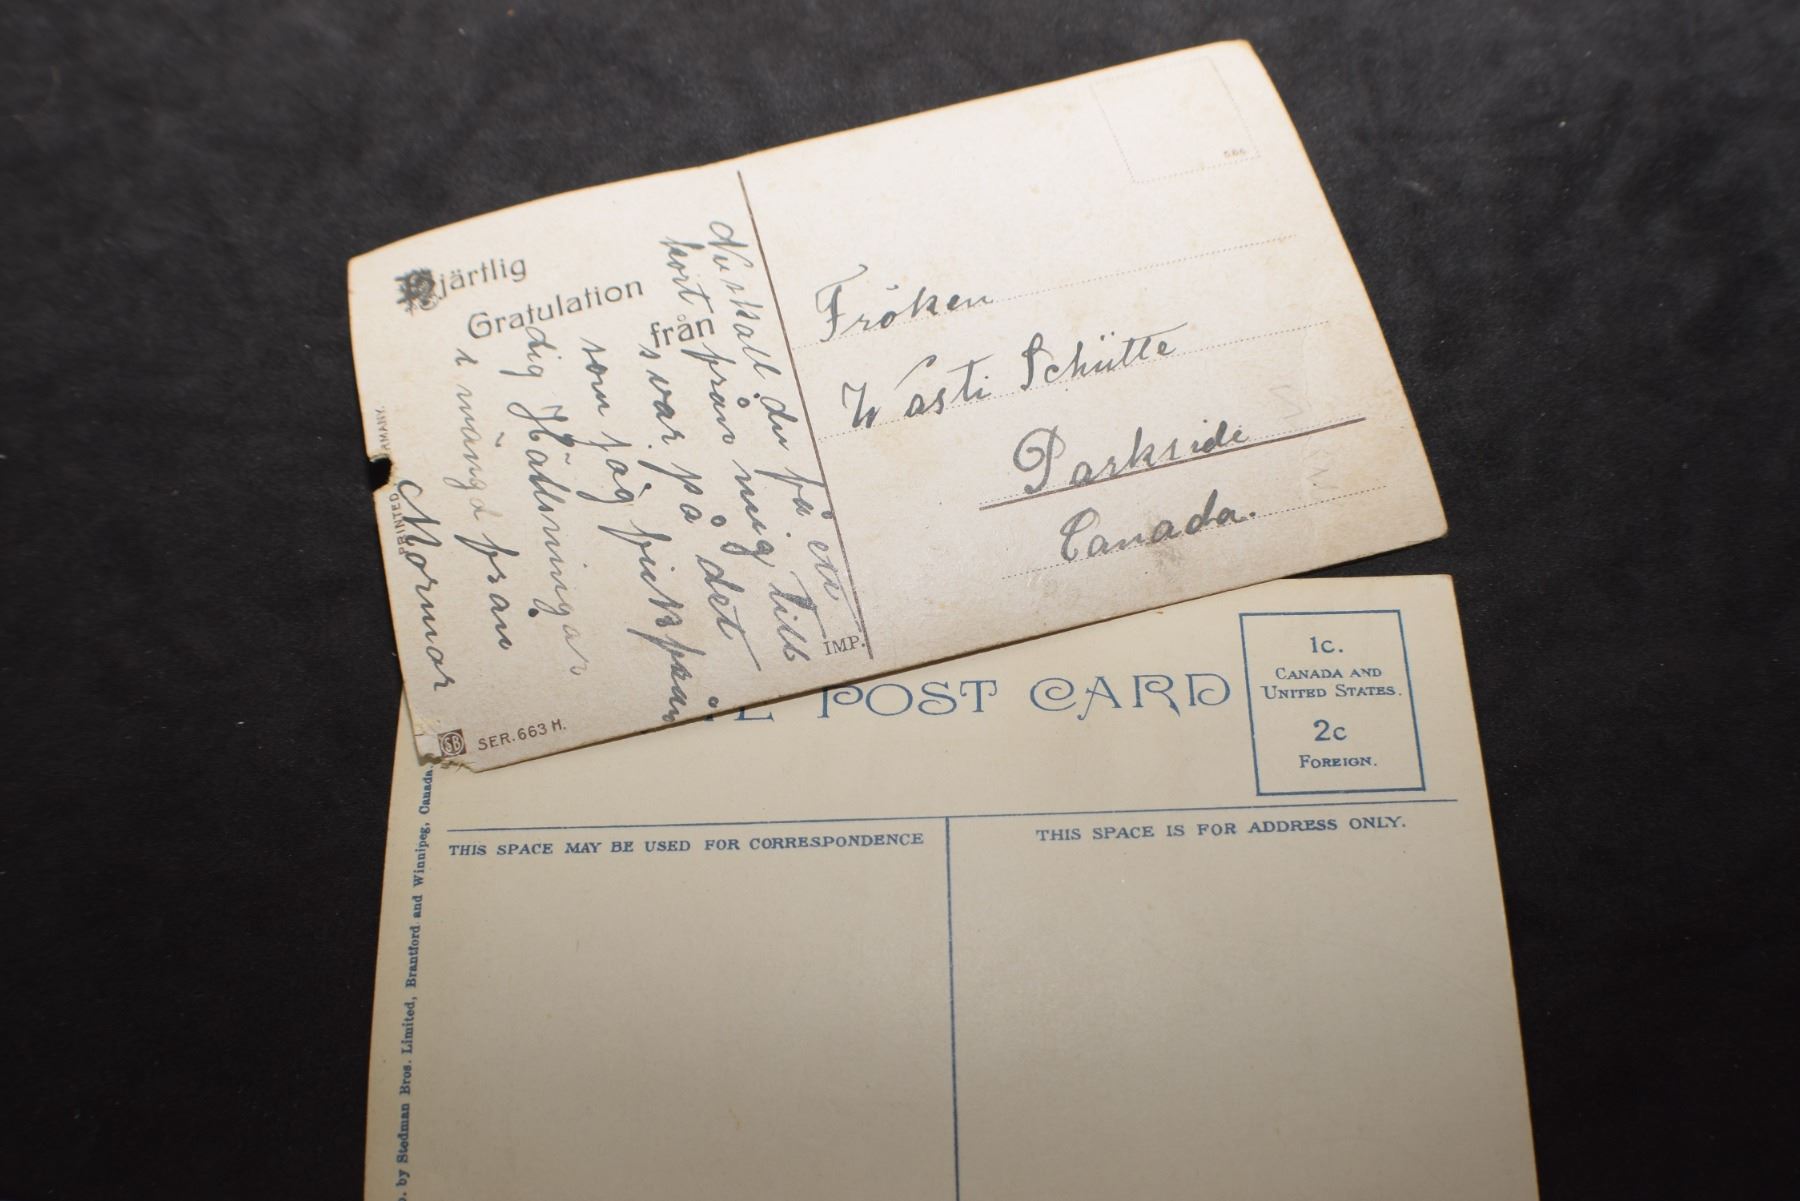 Hjärtlig
Gratulation
från
Nu skall du få ett
kort från mig till
svar på det
som jag fick från
dig Hälsningar
i mängd från
Mormor
PRINTED
SB SER. 663 H.
IMP.
586
Fröken
Wasti Schütte
Parkside
Canada.
POST CARD
1c.
CANADA AND
UNITED STATES.
2c
FOREIGN.
THIS SPACE MAY BE USED FOR CORRESPONDENCE
THIS SPACE IS FOR ADDRESS ONLY.
by Stedman Bros. Limited, Brantford and Winnipeg, Canada.